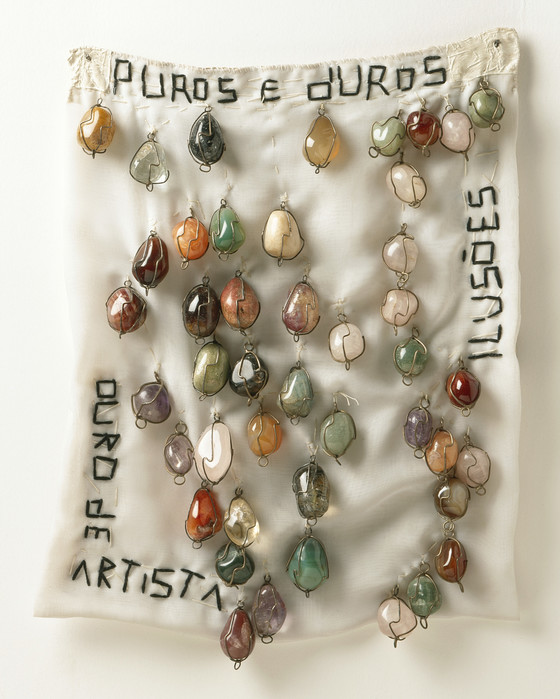 PUROS E dUROS
ILUSÕES
OURO dE
ARTISTA